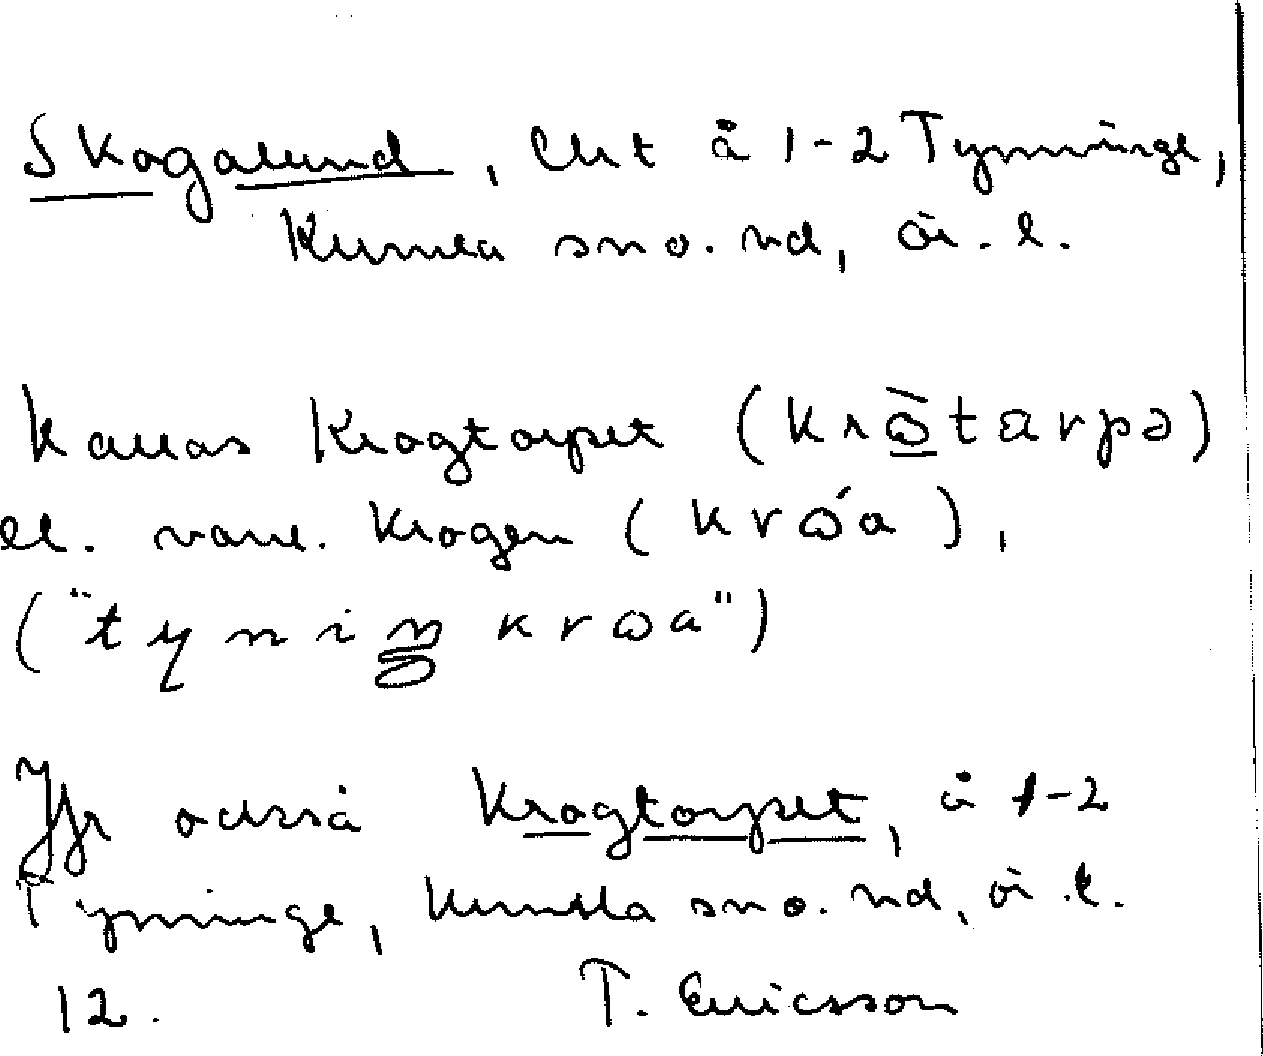 Skogalund, lht å 1-2 Tynninge,
Kumla sn o. hd, Ör. l.
Kallas Krogtorpet (krωtarpə)
el. vanl. Krogen (krω´a),
("tyniŋkrωa")
Jfr också Krogtorpet, å 1-2
Tynninge, Kumla sn o. hd, Ör. l.
12. T. Ericsson